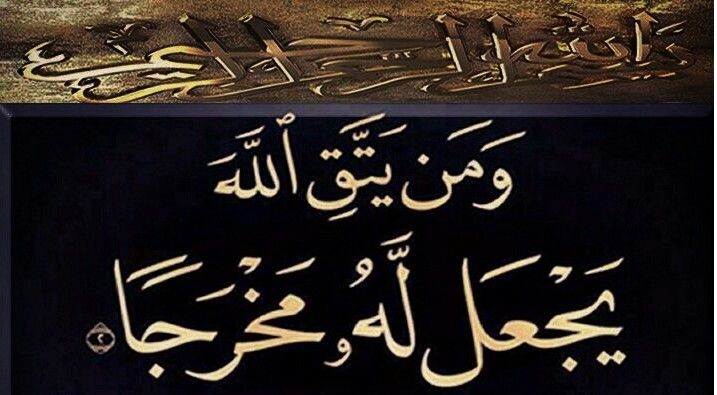 بسم الله الرحمن الرحيم
وَمَن يَتَّقِ ٱللَّهَ
يَجْعَل لَّهُۥ مَخْرَجًا ٢